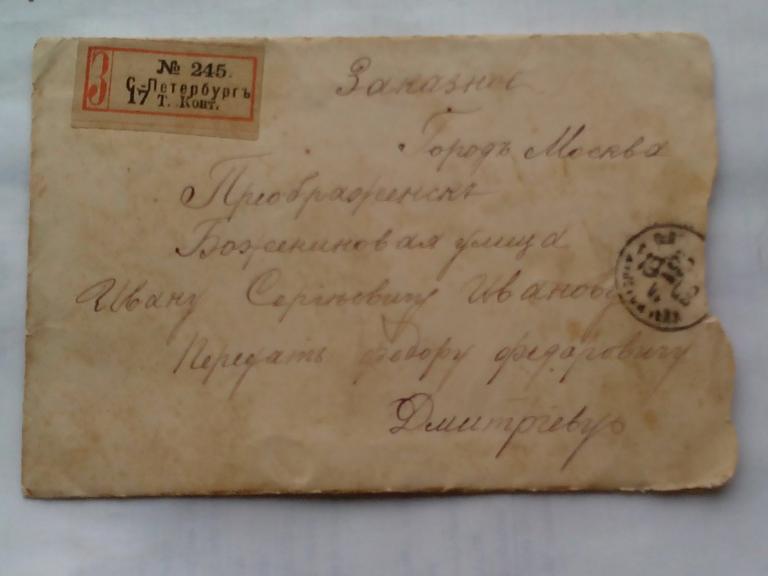 З
№ 245.
С.-Петербургъ
17 Т. Конт.
Заказное
Городъ Москва
Преображенскъ
Божениновая улица
Ивану Сергѣевичу Иванову
Передать федору федаровичу
Дмитріеву